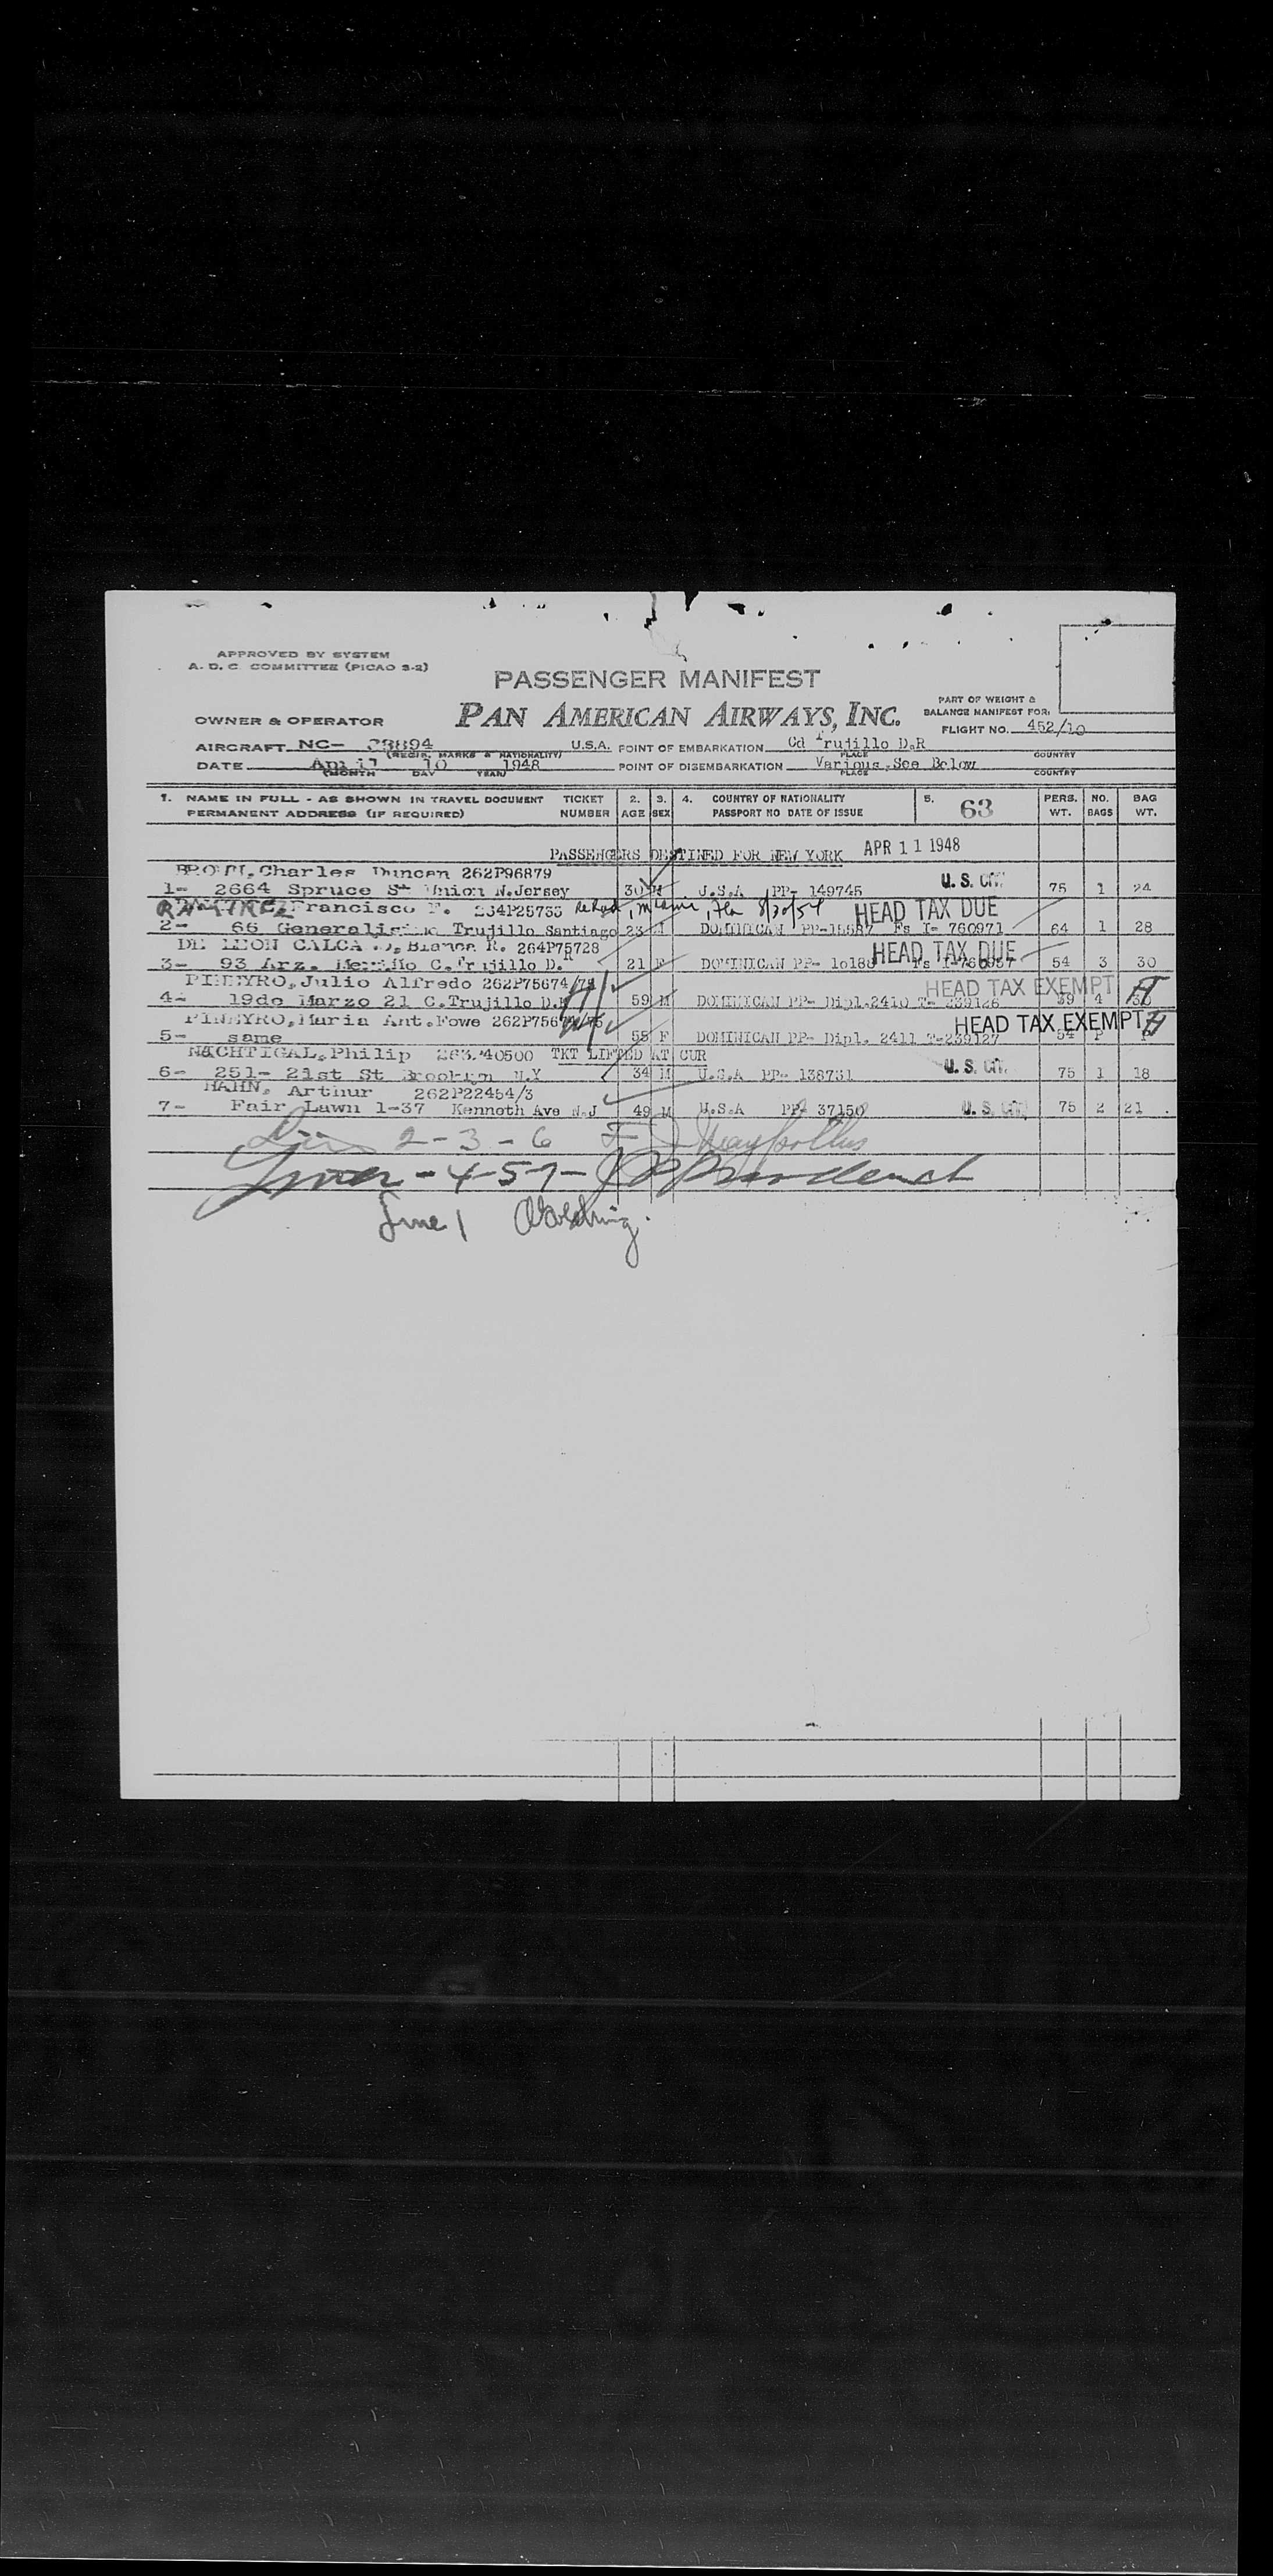 APPROVED BY SYSTEM
A. D. C. COMMITTEE (PICAO 3-2)
PASSENGER MANIFEST
PAN AMERICAN AIRWAYS, INC.
PART OF WEIGHT &
BALANCE MANIFEST FOR:
OWNER & OPERATOR
FLIGHT NO. 452/10
AIRCRAFT NC- 38894 U.S.A. POINT OF EMBARKATION Cd Trujillo D.R
(REGIS. MARKS & NATIONALITY) PLACE COUNTRY
DATE April 10 1948 POINT OF DISEMBARKATION Various See Below
(MONTH DAY YEAR) PLACE COUNTRY
1. NAME IN FULL - AS SHOWN IN TRAVEL DOCUMENT TICKET 2. 3. 4. COUNTRY OF NATIONALITY 5. 63 PERS. NO. BAG
PERMANENT ADDRESS (IF REQUIRED) NUMBER AGE SEX PASSPORT NO DATE OF ISSUE WT. BAGS WT.
PASSENGERS DESTINED FOR NEW YORK APR 11 1948
Charles Duncan 262P96879
1- 2664 Spruce St Union N.Jersey 30 M U.S.A PP- 149745 U. S. CIT. 75 1 24
RAMIREZ Francisco F. 264P25733 Miami, Fla 8/30/54 HEAD TAX DUE
2- 66 Generalisimo Trujillo Santiago 23 M DOMINICAN PP-15587 Fs I- 760971 64 1 28
DE LEON Blanca R. 264P75728 HEAD TAX DUE
3- 93 Arz. Merino C.Trujillo D.R 21 F DOMINICAN PP- Fs 54 3 30
PINEYRO, Julio Alfredo 262P75674/75 HEAD TAX EXEMPT
4- 19do Marzo 21 C.Trujillo D.R 59 M DOMINICAN PP- Dipl.2410 T- 239126 4
PINEYRO, Maria Ant. Fowe HEAD TAX EXEMPT
5- same 55 F DOMINICAN PP- Dipl. 2411 T-239127 54 P P
NACHTIGAL, Philip 263.40500 TKT LIFTED AT CUR
6- 251- 21st St Brooklyn N.Y 34 M U.S.A PP- 138731 U. S. CIT. 75 1 18
HAHN, Arthur 262P22454/3
7- Fair Lawn 1-37 Kenneth Ave N.J 49 M U.S.A PP- 37150 U. S. CIT. 75 2 21
2-3-6
4-5-7-
Line 1